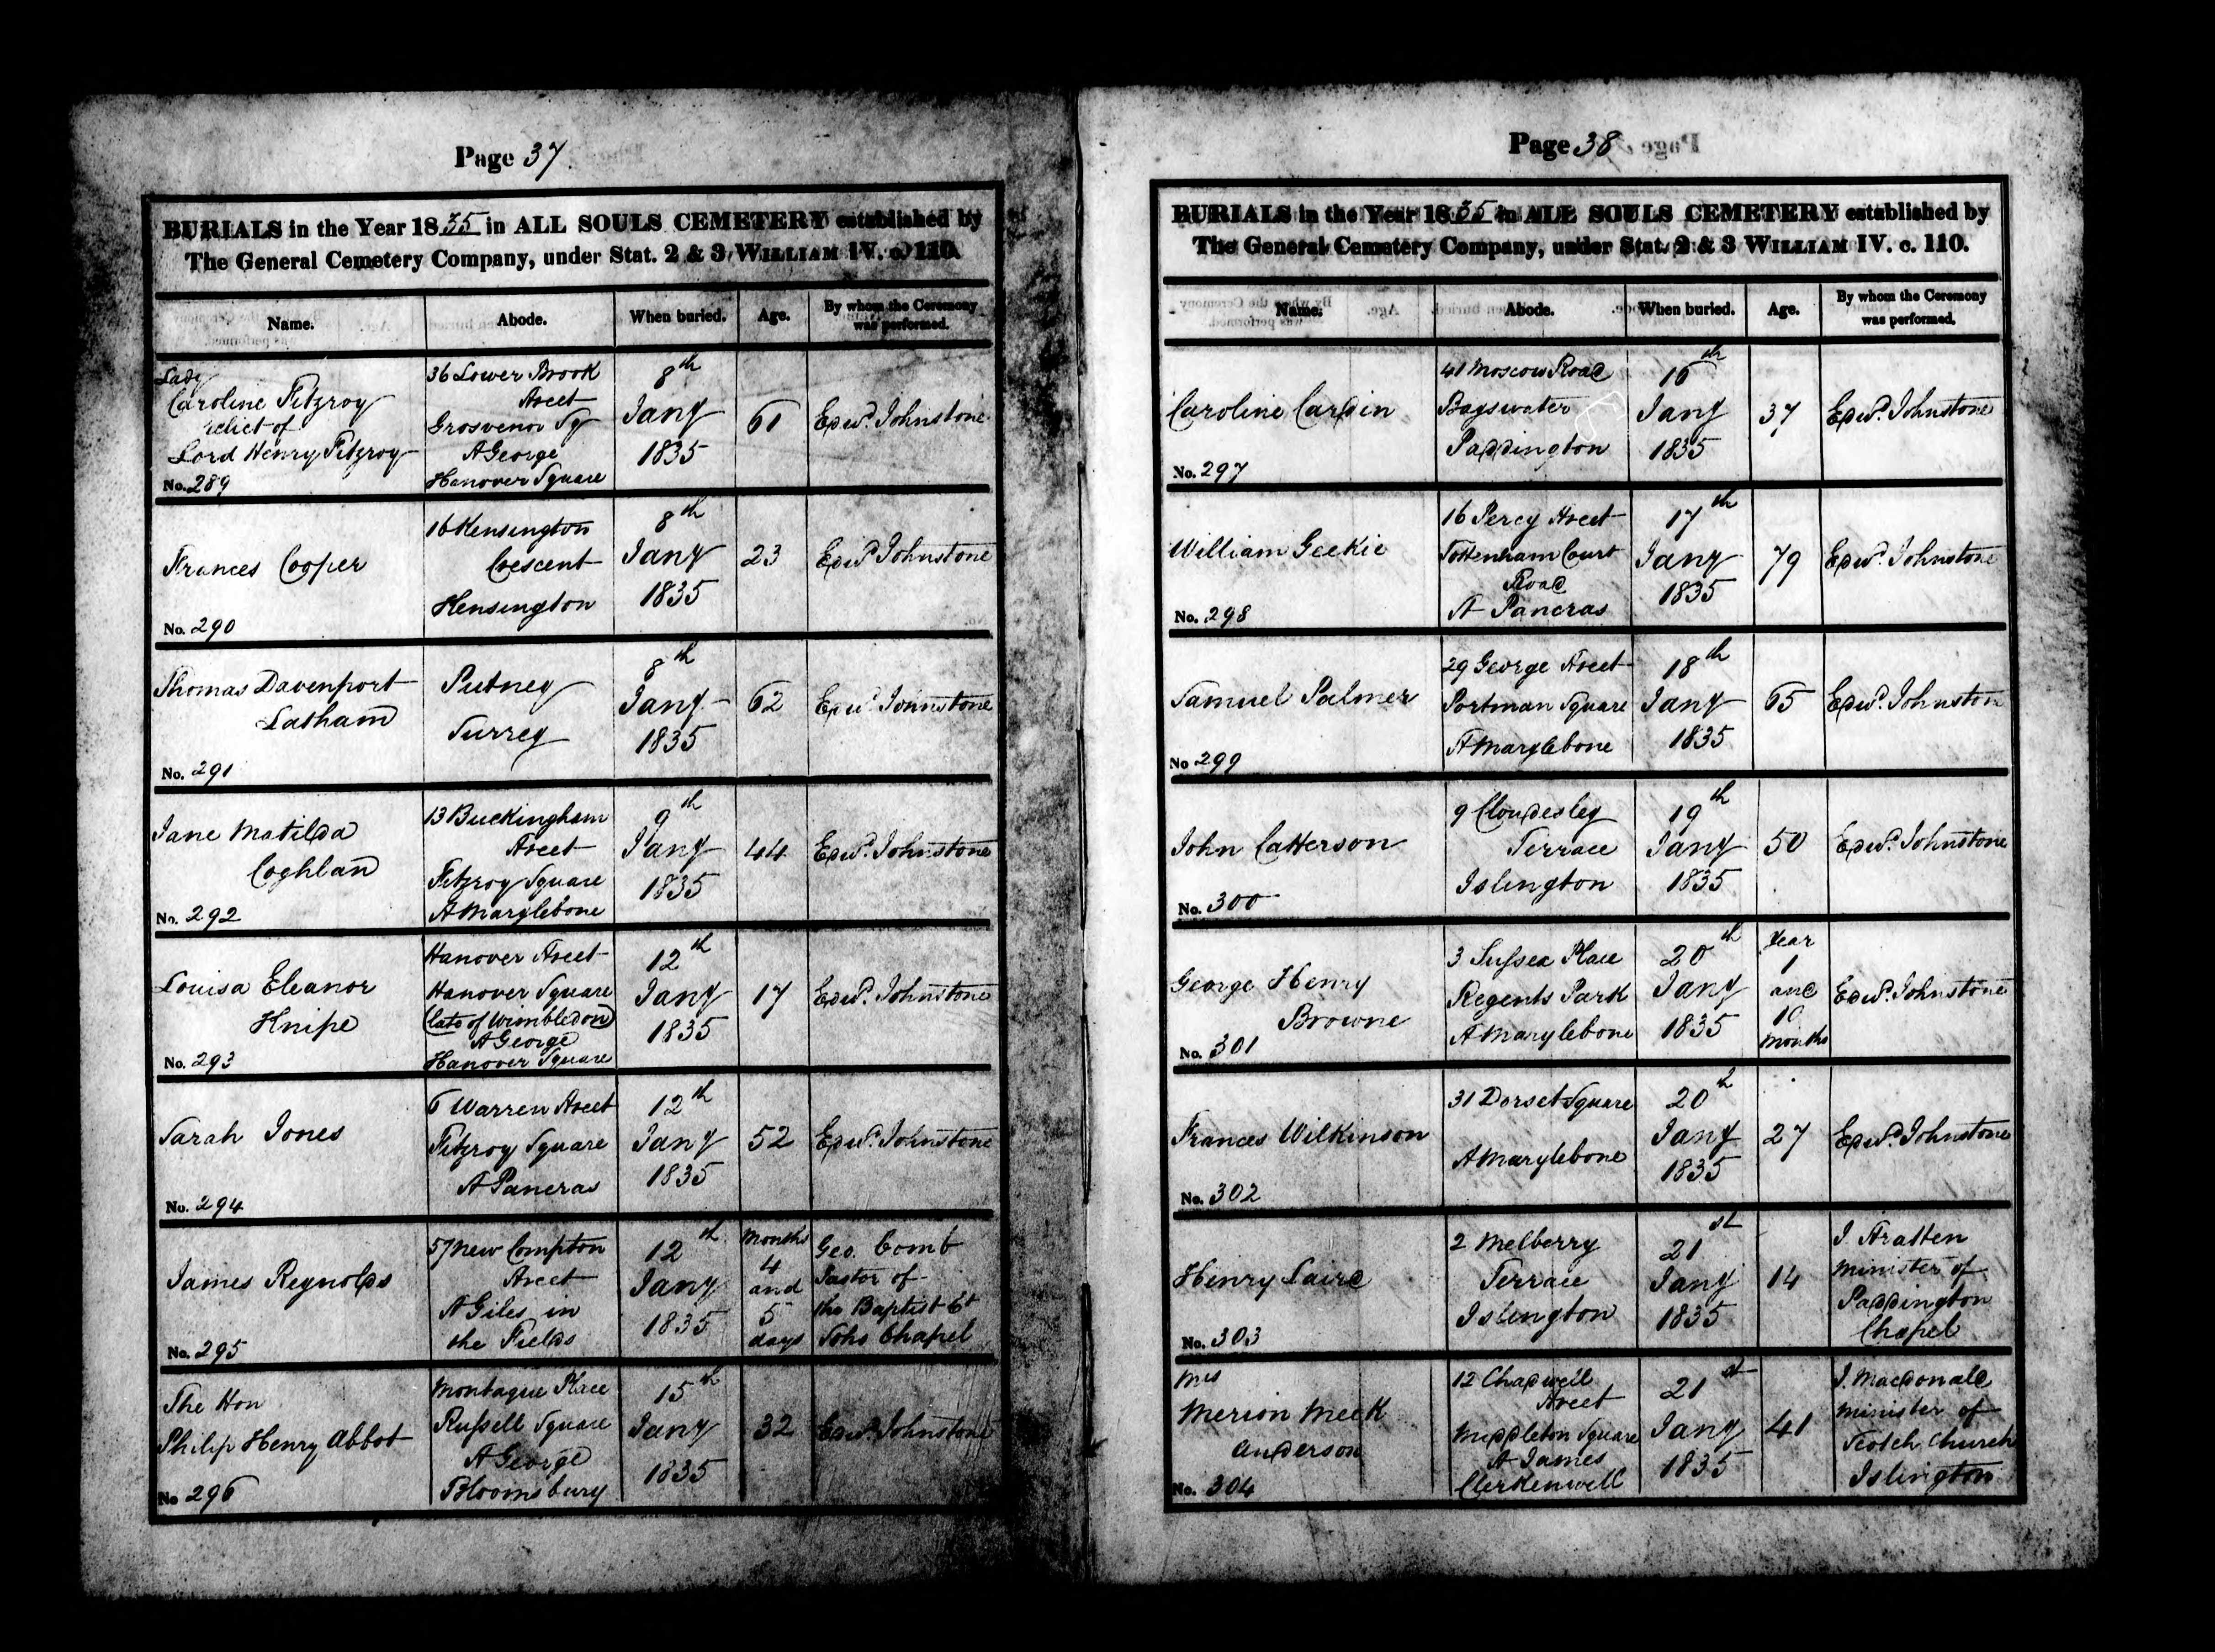 Page 37.
BURIALS in the Year 1835 in ALL SOULS CEMETERY established by
The General Cemetery Company, under Stat. 2 & 3 WILLIAM IV. c. 110.
Name. Abode. When buried. Age. By whom the Ceremony was performed.
Lady
Caroline Fitzroy
relict of
Lord Henry Fitzroy
No. 289
36 Lower Brook
Street
Grosvenor Sq
St George
Hanover Square
8th
Jany
1835
61
Edwd. Johnstone
Frances Cooper
No. 290
16 Kensington
Crescent
Kensington
8th
Jany
1835
23
Edwd Johnstone
Thomas Davenport
Latham
No. 291
Putney
Surrey
8th
Jany
1835
62
Edwd. Johnstone
Jane Matilda
Coghlan
No. 292
13 Buckingham
Street
Fitzroy Square
St Marylebone
9th
Jany
1835
44
Edwd. Johnstone
Louisa Eleanor
Knipe
No. 293
Hanover Street
Hanover Square
(late of Wimbledon)
St George
Hanover Square
12th
Jany
1835
17
Edwd. Johnstone
Sarah Jones
No. 294
6 Warren Street
Fitzroy Square
St Pancras
12th
Jany
1835
52
Edwd. Johnstone
James Reynolds
No. 295
57 New Compton
Street
St Giles in
the Fields
12th
Jany
1835
Months
4
and
5
days
Geo. Comb
Pastor of
the Baptist Ct
Soho Chapel
The Hon
Philip Henry Abbot
No 296
Montague Place
Russell Square
St George
Bloomsbury
15th
Jany
1835
32
Edwd. Johnstone
Page 38
BURIALS in the Year 1835 in ALL SOULS CEMETERY established by
The General Cemetery Company, under Stat. 2 & 3 WILLIAM IV. c. 110.
Name. Abode. When buried. Age. By whom the Ceremony was performed.
Caroline Cardin
No. 297
41 Moscow Road
Bayswater
Paddington
16th
Jany
1835
37
Edwd. Johnstone
William Geekie
No. 298
16 Percy Street
Tottenham Court
Road
St Pancras
17th
Jany
1835
79
Edwd. Johnstone
Samuel Palmer
No 299
29 George Street
Portman Square
St Marylebone
18th
Jany
1835
65
Edwd. Johnstone
John Catterson
No. 300
9 Cloudesley
Terrace
Islington
19th
Jany
1835
50
Edwd. Johnstone
George Henry
Browne
No. 301
3 Sussex Place
Regents Park
St Marylebone
20th
Jany
1835
Year
1
and
10
Months
Edwd. Johnstone
Frances Wilkinson
No. 302
31 Dorset Square
St Marylebone
20th
Jany
1835
27
Edwd. Johnstone
Henry Laird
No. 303
2 Melberry
Terrace
Islington
21st
Jany
1835
14
J. Stratten
Minister of
Paddington
Chapel
Mrs
Merion Meek
Anderson
No. 304
12 Chadwell
Street
Middleton Square
St James
Clerkenwell
21st
Jany
1835
41
J. Macdonald
Minister of
Scotch Church
Islington